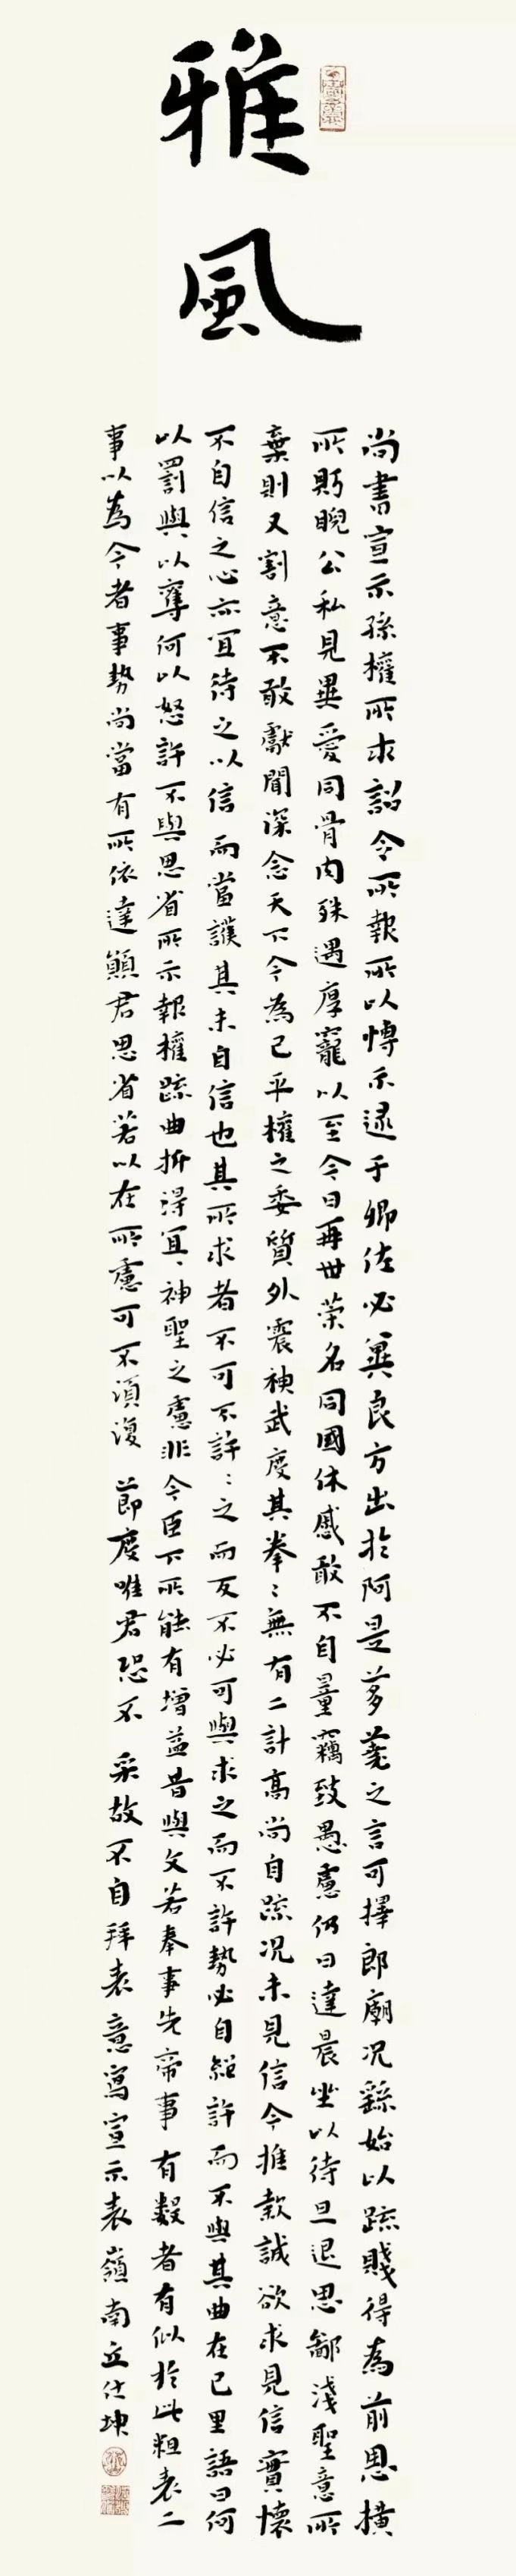 雅
風
尚書宣示孫權所求詔令所報所以博示逮于卿佐必冀良方出於阿是芻蕘之言可擇郎廟況繇始以疏賤得為前恩橫
所眄睨公私見異愛同骨肉殊遇厚寵以至今日再世榮名同國休慼敢不自量竊致愚慮仍日達晨坐以待旦退思鄙淺聖意所
棄則又割意不敢獻聞深念天下今為已平權之委質外震神武度其拳〻無有二計高尚自疏況未見信今推款誠欲求見信實懷
不自信之心亦宜待之以信而當護其未自信也其所求者不可不許〻之而反不必可與求之而不許勢必自絕許而不與其曲在己里語曰何
以罰與以奪何以怒許不與思省所示報權疏曲折得宜〻神聖之慮非今臣下所能有增益昔與文若奉事先帝事有數者有似於此粗表二
事以為今者事勢尚當有所依違願君思省若以在所慮可不須復節度唯君恐不采故不自拜表意寫宣示表嶺南丘仕坤